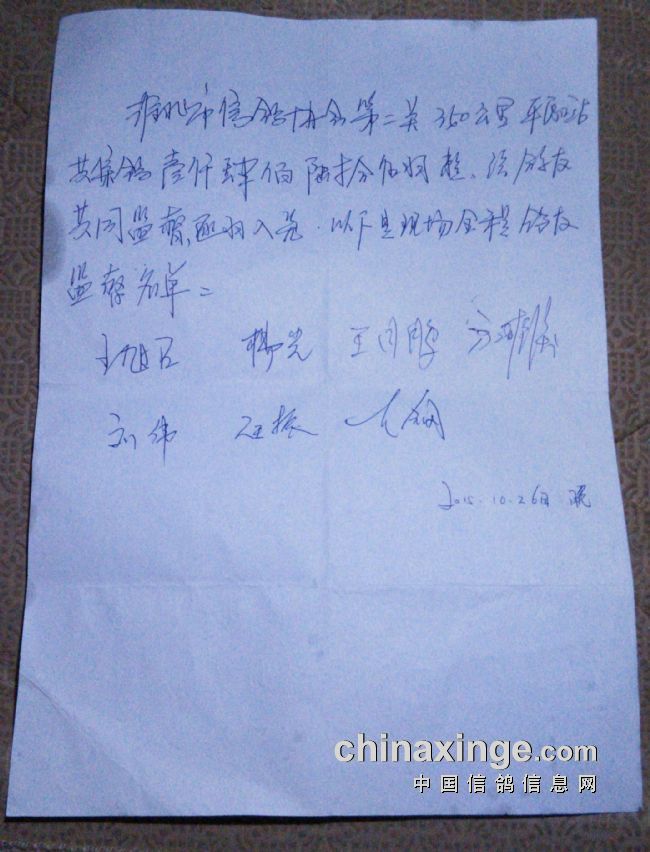 淮北市信鸽协会第二关350公里平原站
共集鸽壹仟肆佰陆拾 羽整、经鸽友
共同监督 羽入笼．以下是现场全程鸽友
监督名单：
王旭 杨光 王同
刘伟 汪振
2015.10.26日 晚
chinaxinge.com
中国信鸽信息网